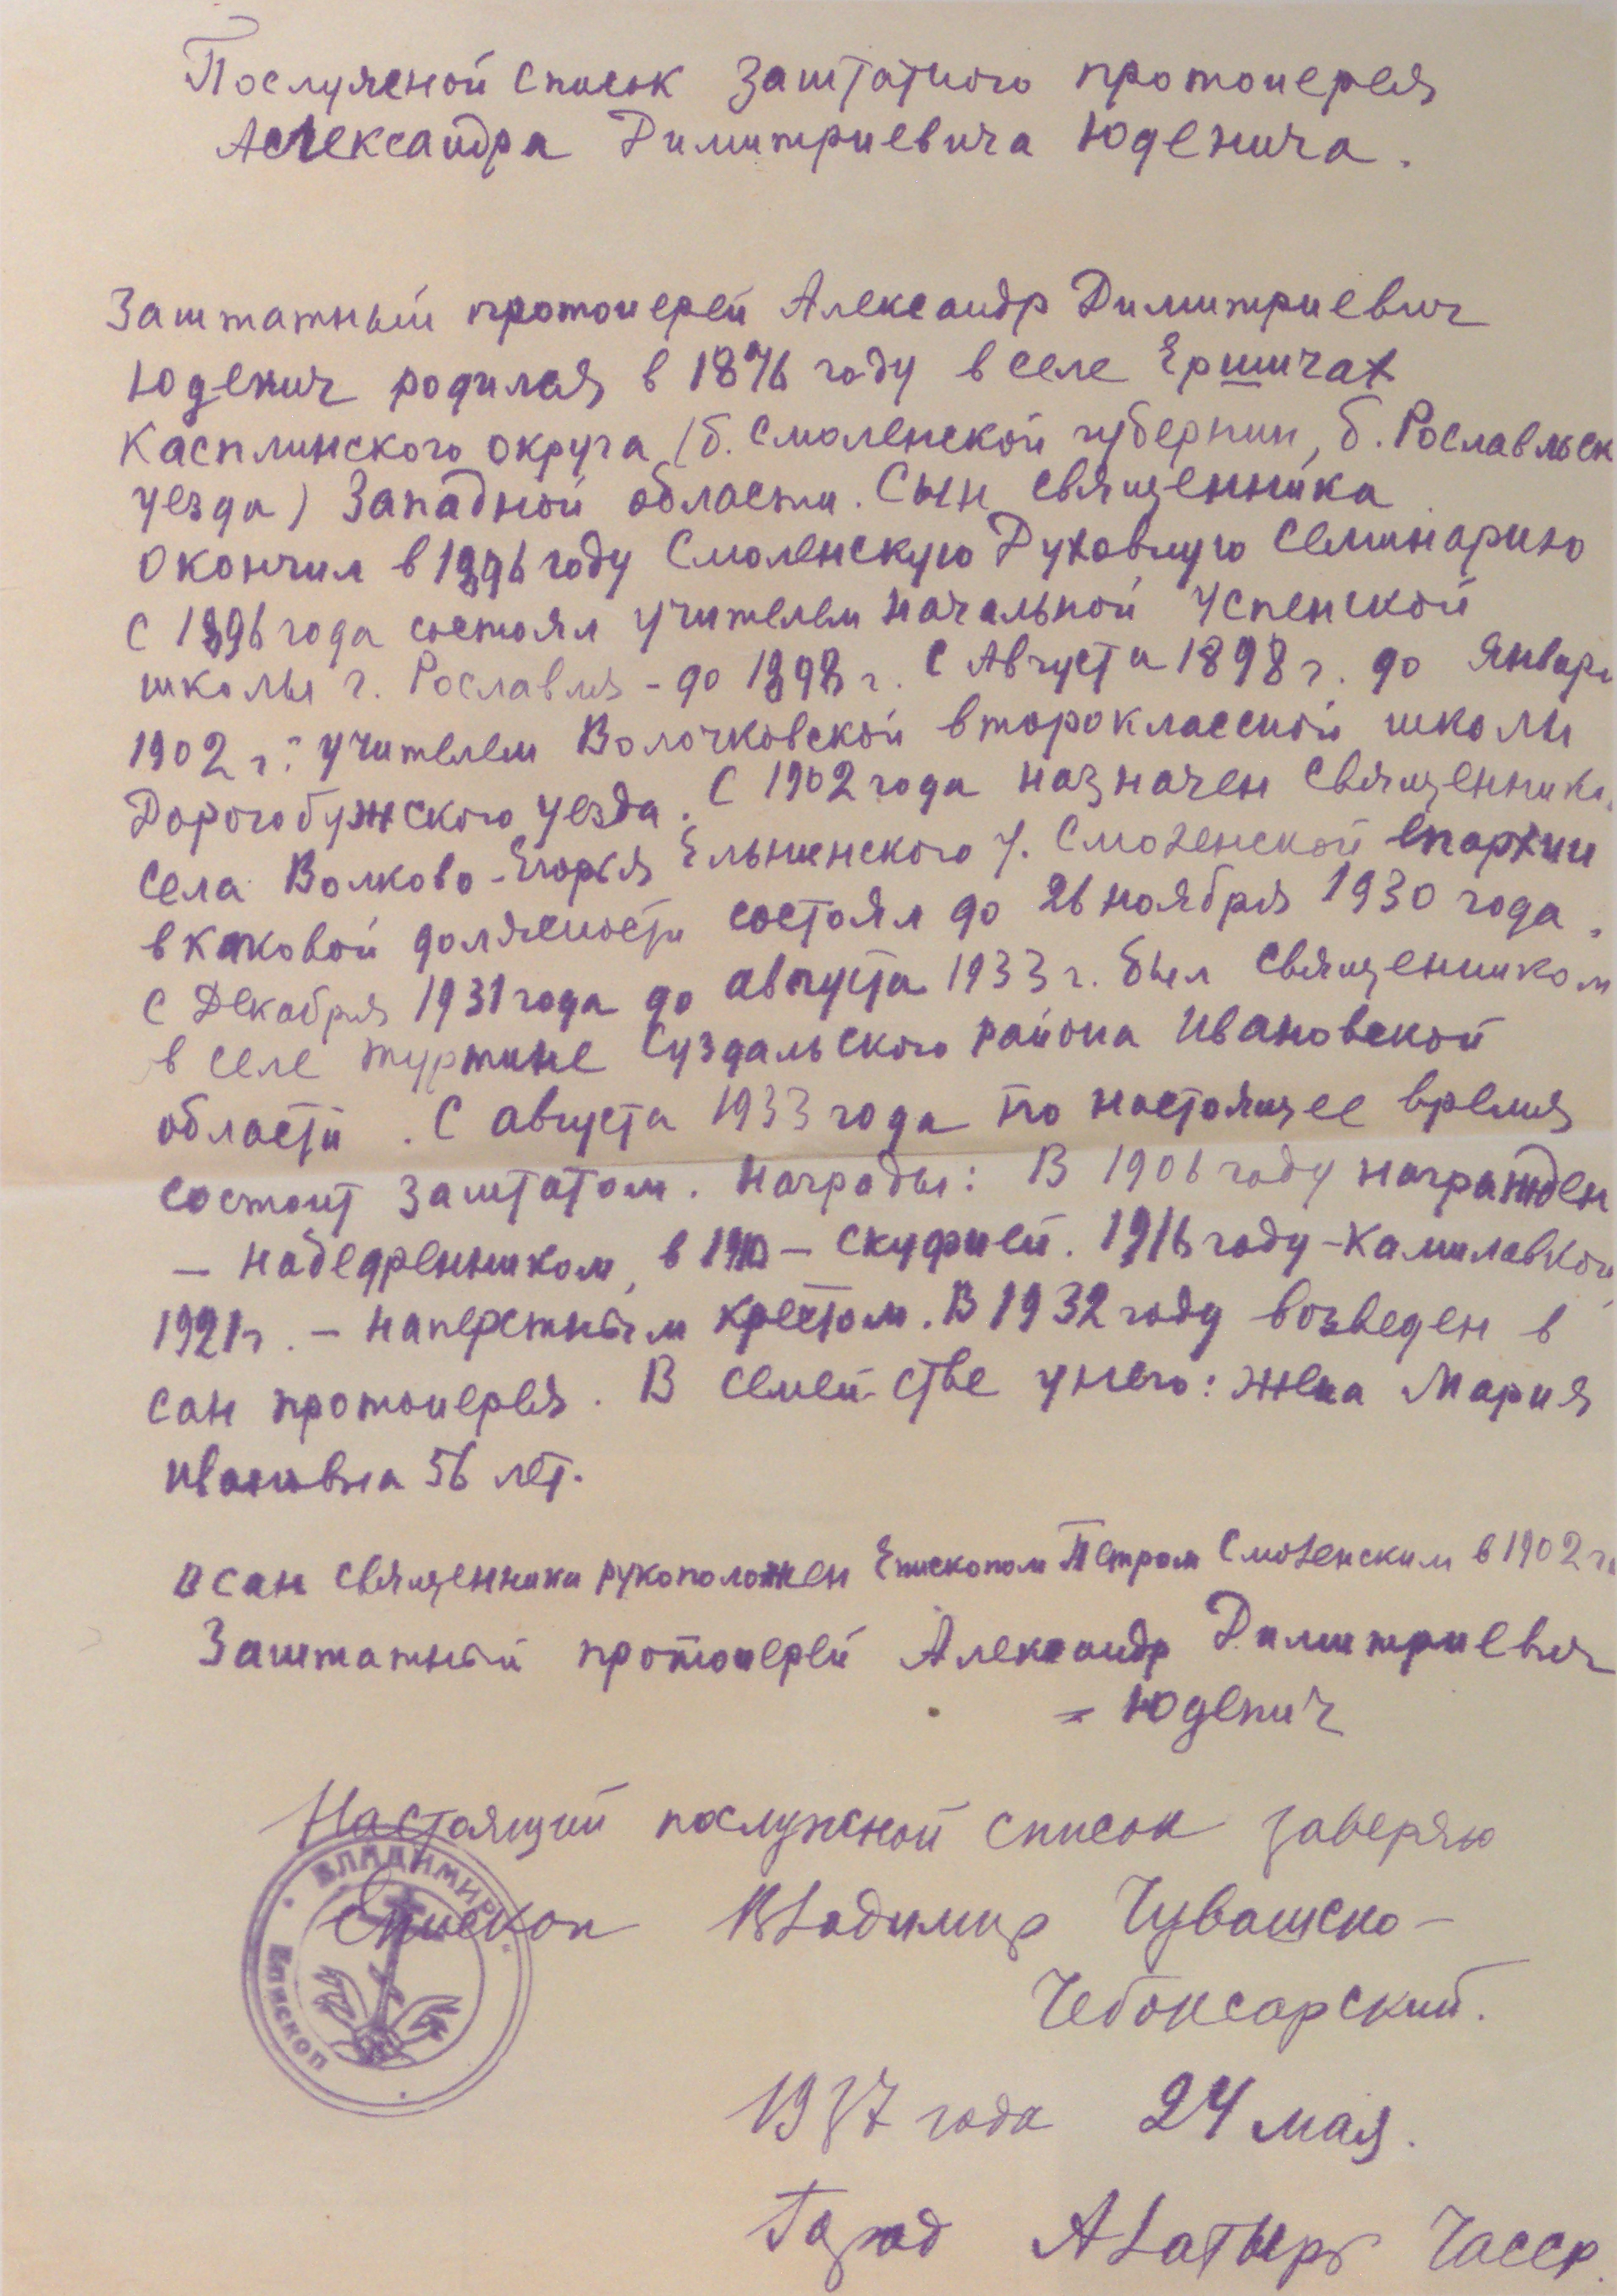 Послужной список заштатного протоиерея
Александра Димитриевича Юденича.
Заштатный протоиерей Александр Димитриевич
Юденич родился в 1876 году в селе Ершичах
Касплинского округа (б. Смоленской губернии, б. Рославльск
уезда) Западной области. Сын священника
Окончил в 1896 году Смоленскую Духовную Семинарию
С 1896 года состоял учителем начальной Успенской
школы г. Рославля - до 1898 г. С Августа 1898 г. до Январ
1902 г. учителем Волочковской второклассной школы
Дорогобужского уезда. С 1902 года назначен священнико
села Волково-Егорья Ельненского у. Смоленской епархии
в каковой должности состоял до 26 ноября 1930 года.
С Декабря 1931 года до августа 1933 г. был священником
в селе Туртине Суздальского района Ивановской
области. С августа 1933 года по настоящее время
состоит заштатом. Награды: В 1906 году награжден
— набедренником, в 1910 — скуфией. 1916 году — Камилавкой
1921 г. — наперстным крестом. В 1932 году возведен в
сан протоиерея. В семействе у него: жена Мария
Ивановна 56 лет.
В сан священника рукоположен Епископом Петром Смоленским в 1902 г
Заштатный протоиерей Александр Димитриевич
= Юденич
Настоящий послужной список заверяю
Епископ Владимир Чувашско-
Чебоксарский.
1937 года 24 мая.
Город Алатырь ЧАССР.
ВЛАДИМИР
Епископ